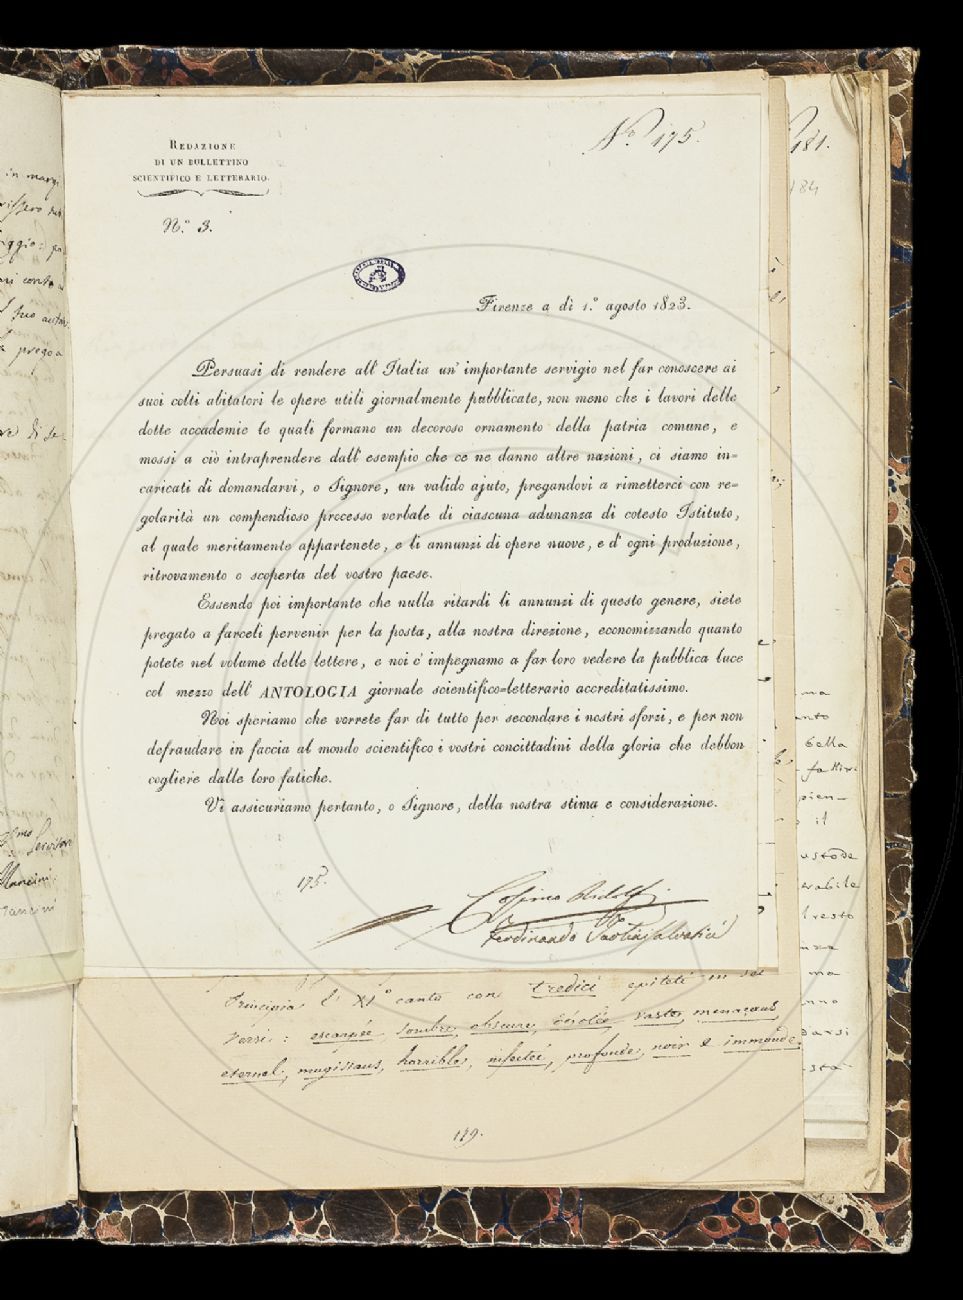 REDAZIONE
DI UN BULLETTINO
SCIENTIFICO E LETTERARIO.
N.º 3.
Nº. 175.
Firenze a dì 1.º agosto 1823.
Persuasi di rendere all' Italia un' importante servigio nel far conoscere ai
suoi colti abitatori le opere utili giornalmente pubblicate, non meno che i lavori delle
dotte accademie le quali formano un decoroso ornamento della patria comune, e
mossi a ciò intraprendere dall' esempio che ce ne danno altre nazioni, ci siamo in=
caricati di domandarvi, o Signore, un valido ajuto, pregandovi a rimetterci con re=
golarità un compendioso processo verbale di ciascuna adunanza di cotesto Istituto,
al quale meritamente appartenete, e li annunzi di opere nuove, e d' ogni produzione,
ritrovamento o scoperta del vostro paese.
Essendo poi importante che nulla ritardi li annunzi di questo genere, siete
pregato a farceli pervenir per la posta, alla nostra direzione, economizzando quanto
potete nel volume delle lettere, e noi c' impegnamo a far loro vedere la pubblica luce
col mezzo dell' ANTOLOGIA giornale scientifico=letterario accreditatissimo.
Noi speriamo che vorrete far di tutto per secondare i nostri sforzi, e per non
defraudare in faccia al mondo scientifico i vostri concittadini della gloria che debbon
cogliere dalle loro fatiche.
Vi assicuriamo pertanto, o Signore, della nostra stima e considerazione.
175.
Cosimo Ridolfi
Ferdinando Tartini Salvatici
Principia l' XIº canto con tredici epiteti in sei
versi: escarpée, sombre, obscure, désolée, vaste, menaçant,
eternel, mugissans, horrible, infectée, profonde, noir e immonde.
179.
181.
184
in margi
conto
prego a
Servitore
Mancini
Mancini
ma
bella
pien-
il
custode
resto
ma